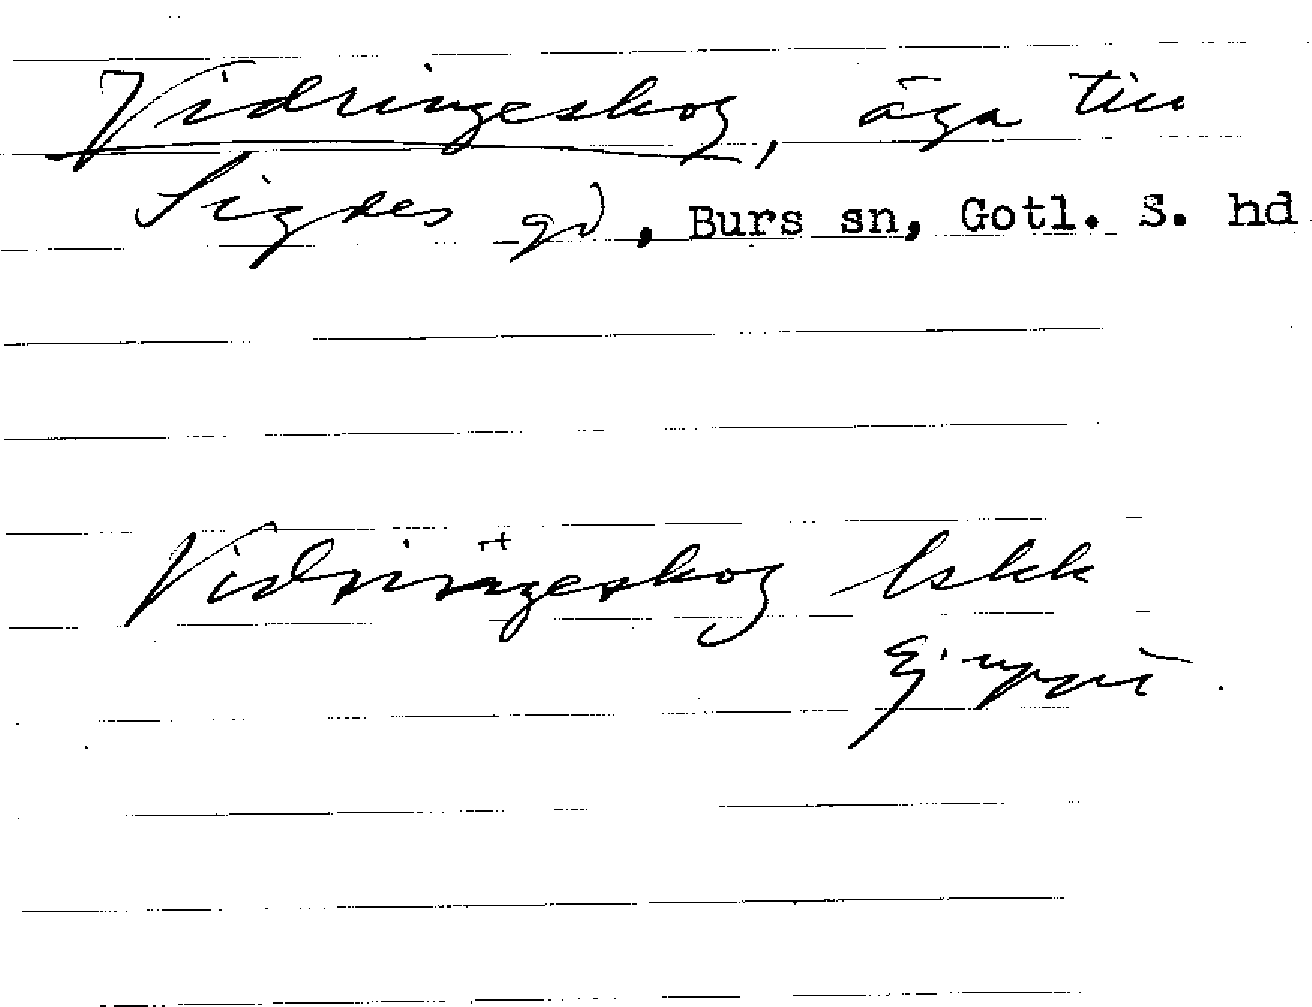 Vidringeskog, äga till
Sigdes gd, Burs sn, Gotl. S. hd
Vidringeskog lskk
Ej uppt.